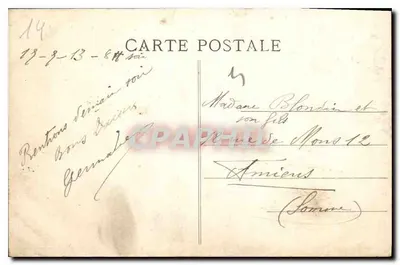 14
CARTE POSTALE
13-9-13 - soir
Rentrons demain soir
Bons Baisers
Germaine
Madame Blondin et
son fils
rue de Mons 12
Amiens
(Somme)
CPARAMA